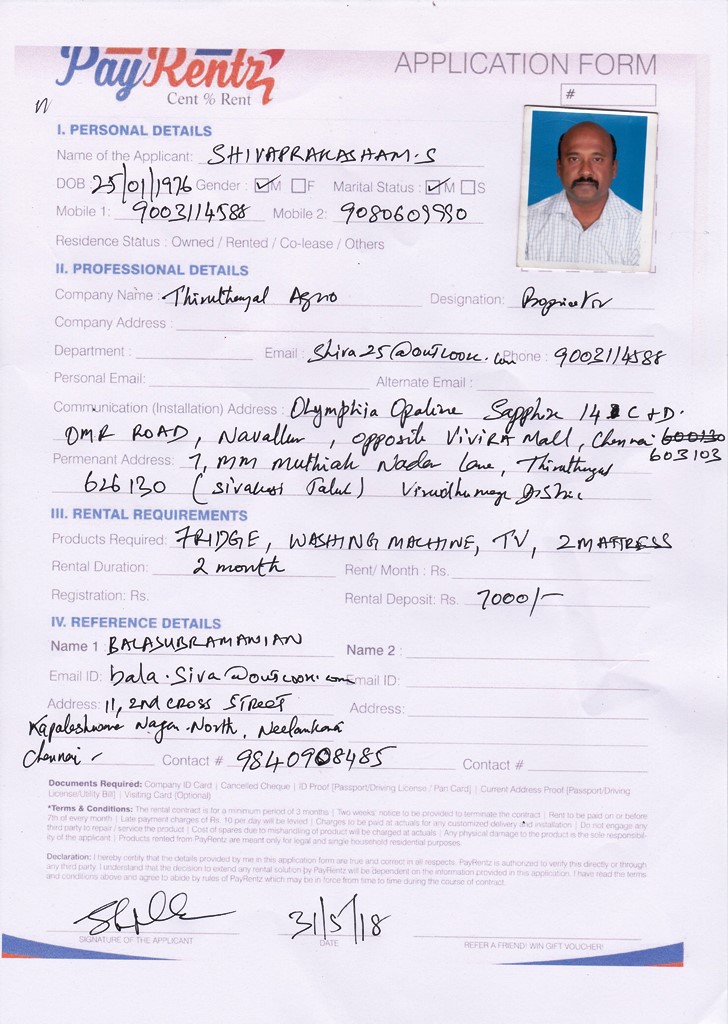 PayRentz
Cent % Rent
APPLICATION FORM
#
I. PERSONAL DETAILS
Name of the Applicant: SHIVAPRAKASHAM.S
DOB 25/01/1976 Gender : M F Marital Status : M S
Mobile 1: 9003114588 Mobile 2: 9080609990
Residence Status : Owned / Rented / Co-lease / Others
II. PROFESSIONAL DETAILS
Company Name : Thiruthangal Agro Designation:
Company Address :
Department : Email : Shiva25@outlook.com Phone : 9003114588
Personal Email: Alternate Email :
Communication (Installation) Address : Olymphia Opaline Sapphire 14 C+D.
OMR ROAD, Navallur, opposite VIVIRA Mall, Chennai 600130
603103
Permenant Address: 7, MM Muthiah Nadar Lane, Thiruthangal
626130 (Sivakasi Taluk) Virudhunagar District
III. RENTAL REQUIREMENTS
Products Required: FRIDGE, WASHING MACHINE, TV, 2 MATTRESS
Rental Duration: 2 month Rent/ Month : Rs.
Registration: Rs. Rental Deposit: Rs. 7000/-
IV. REFERENCE DETAILS
Name 1 BALASUBRAMANIAN Name 2 :
Email ID: bala.siva@outlook.com Email ID:
Address: 11, 2ND CROSS STREET Address:
Kapaleshwarar Nagar North, Neelankarai
Chennai - Contact # 9840908485 Contact #
Documents Required: Company ID Card | Cancelled Cheque | ID Proof [Passport/Driving License / Pan Card] | Current Address Proof [Passport/Driving
License/Utility Bill] | Visiting Card (Optional)
*Terms & Conditions: This rental contract is for a minimum period of 3 months | Two weeks' notice to be provided to terminate the contract | Rent to be paid on or before
7th of every month | Late payment charges of Rs. 10 per day will be levied | Charges to be paid at actuals for any customized delivery and installation | Do not engage any
third party to repair / service the product | Cost of spares due to mishandling of product will be charged at actuals | Any physical damage to the product is the sole responsibil-
ity of the applicant | Products rented from PayRentz are meant only for legal and single household residential purposes.
Declaration: I hereby certify that the details provided by me in this application form are true and correct in all respects. PayRentz is authorized to verify this directly or through
any third party. I understand that the decision to extend any rental solution by PayRentz will be dependent on the information provided in this application. I have read the terms
and conditions above and agree to abide by rules of PayRentz which may be in force from time to time during the course of contract.
31/5/18
SIGNATURE OF THE APPLICANT DATE REFER A FRIEND! WIN GIFT VOUCHER!